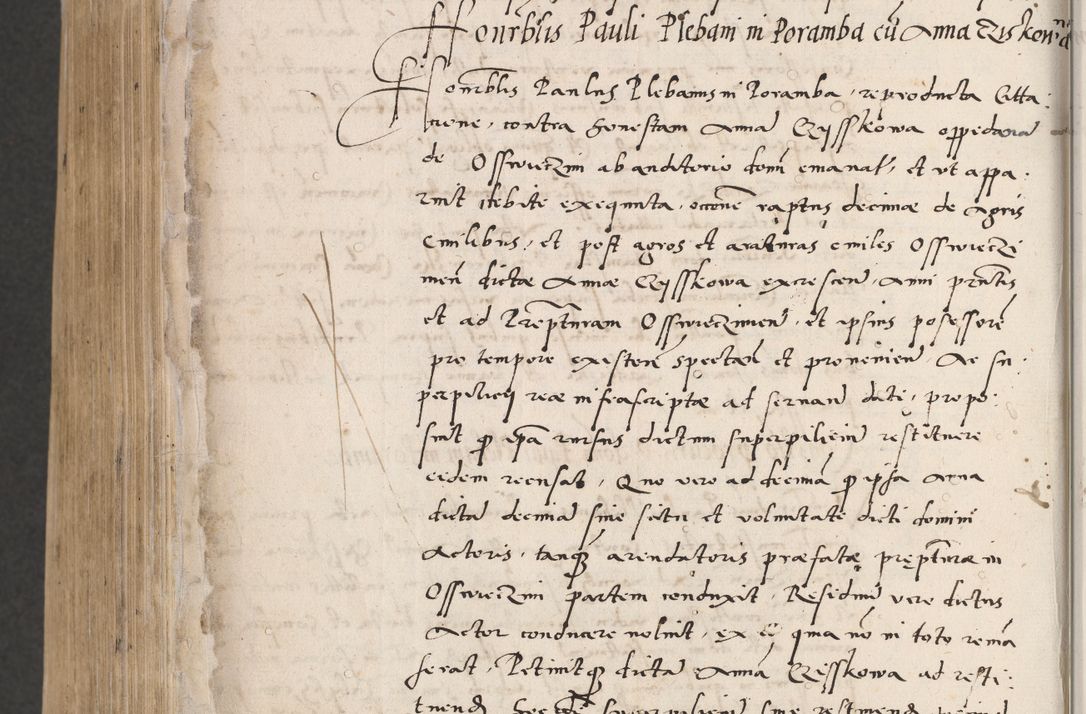 Honrblis Pauli Plebani in Poramba cū Anna Czisskow̄na
Honrblis Paulus Plebanus in Poramba, reproducta Citta:
tione, contra honestam Annā Czysskowa oppedanā
de Osswieczim ab auditorio domī emanat, et ut appa:
ruit debite exequuta, occone raptus decimæ de Agris
Cmilibus, et post agros et araturas cmiles Osswieczi
men dictæ Annæ Czysskowa excrescen, Anni prntis
et ad Præpturam Osswieczimen, et ipsius possessore
pro tempore existen spectan et provenien Ac su:
perpilicij reæ infrascriptæ ad servan dati, propo:
suit q ipa rursus dictum superpiliciu restituere
eidem recusat, Quo vero ad decimā q ipsa Anna
dictā decimā sine scitu et voluntate dicti domini
Actoris, tanq arendatoris præfatæ pręptūræ in
Osswieczim partem conduxit, Residuū vero dictus
Actor conducere noluit, ex eo quia nō in toto remā
serat, Petiuitq dictā Annā Czysskowa ad resti:
tuend superpiliciu sine